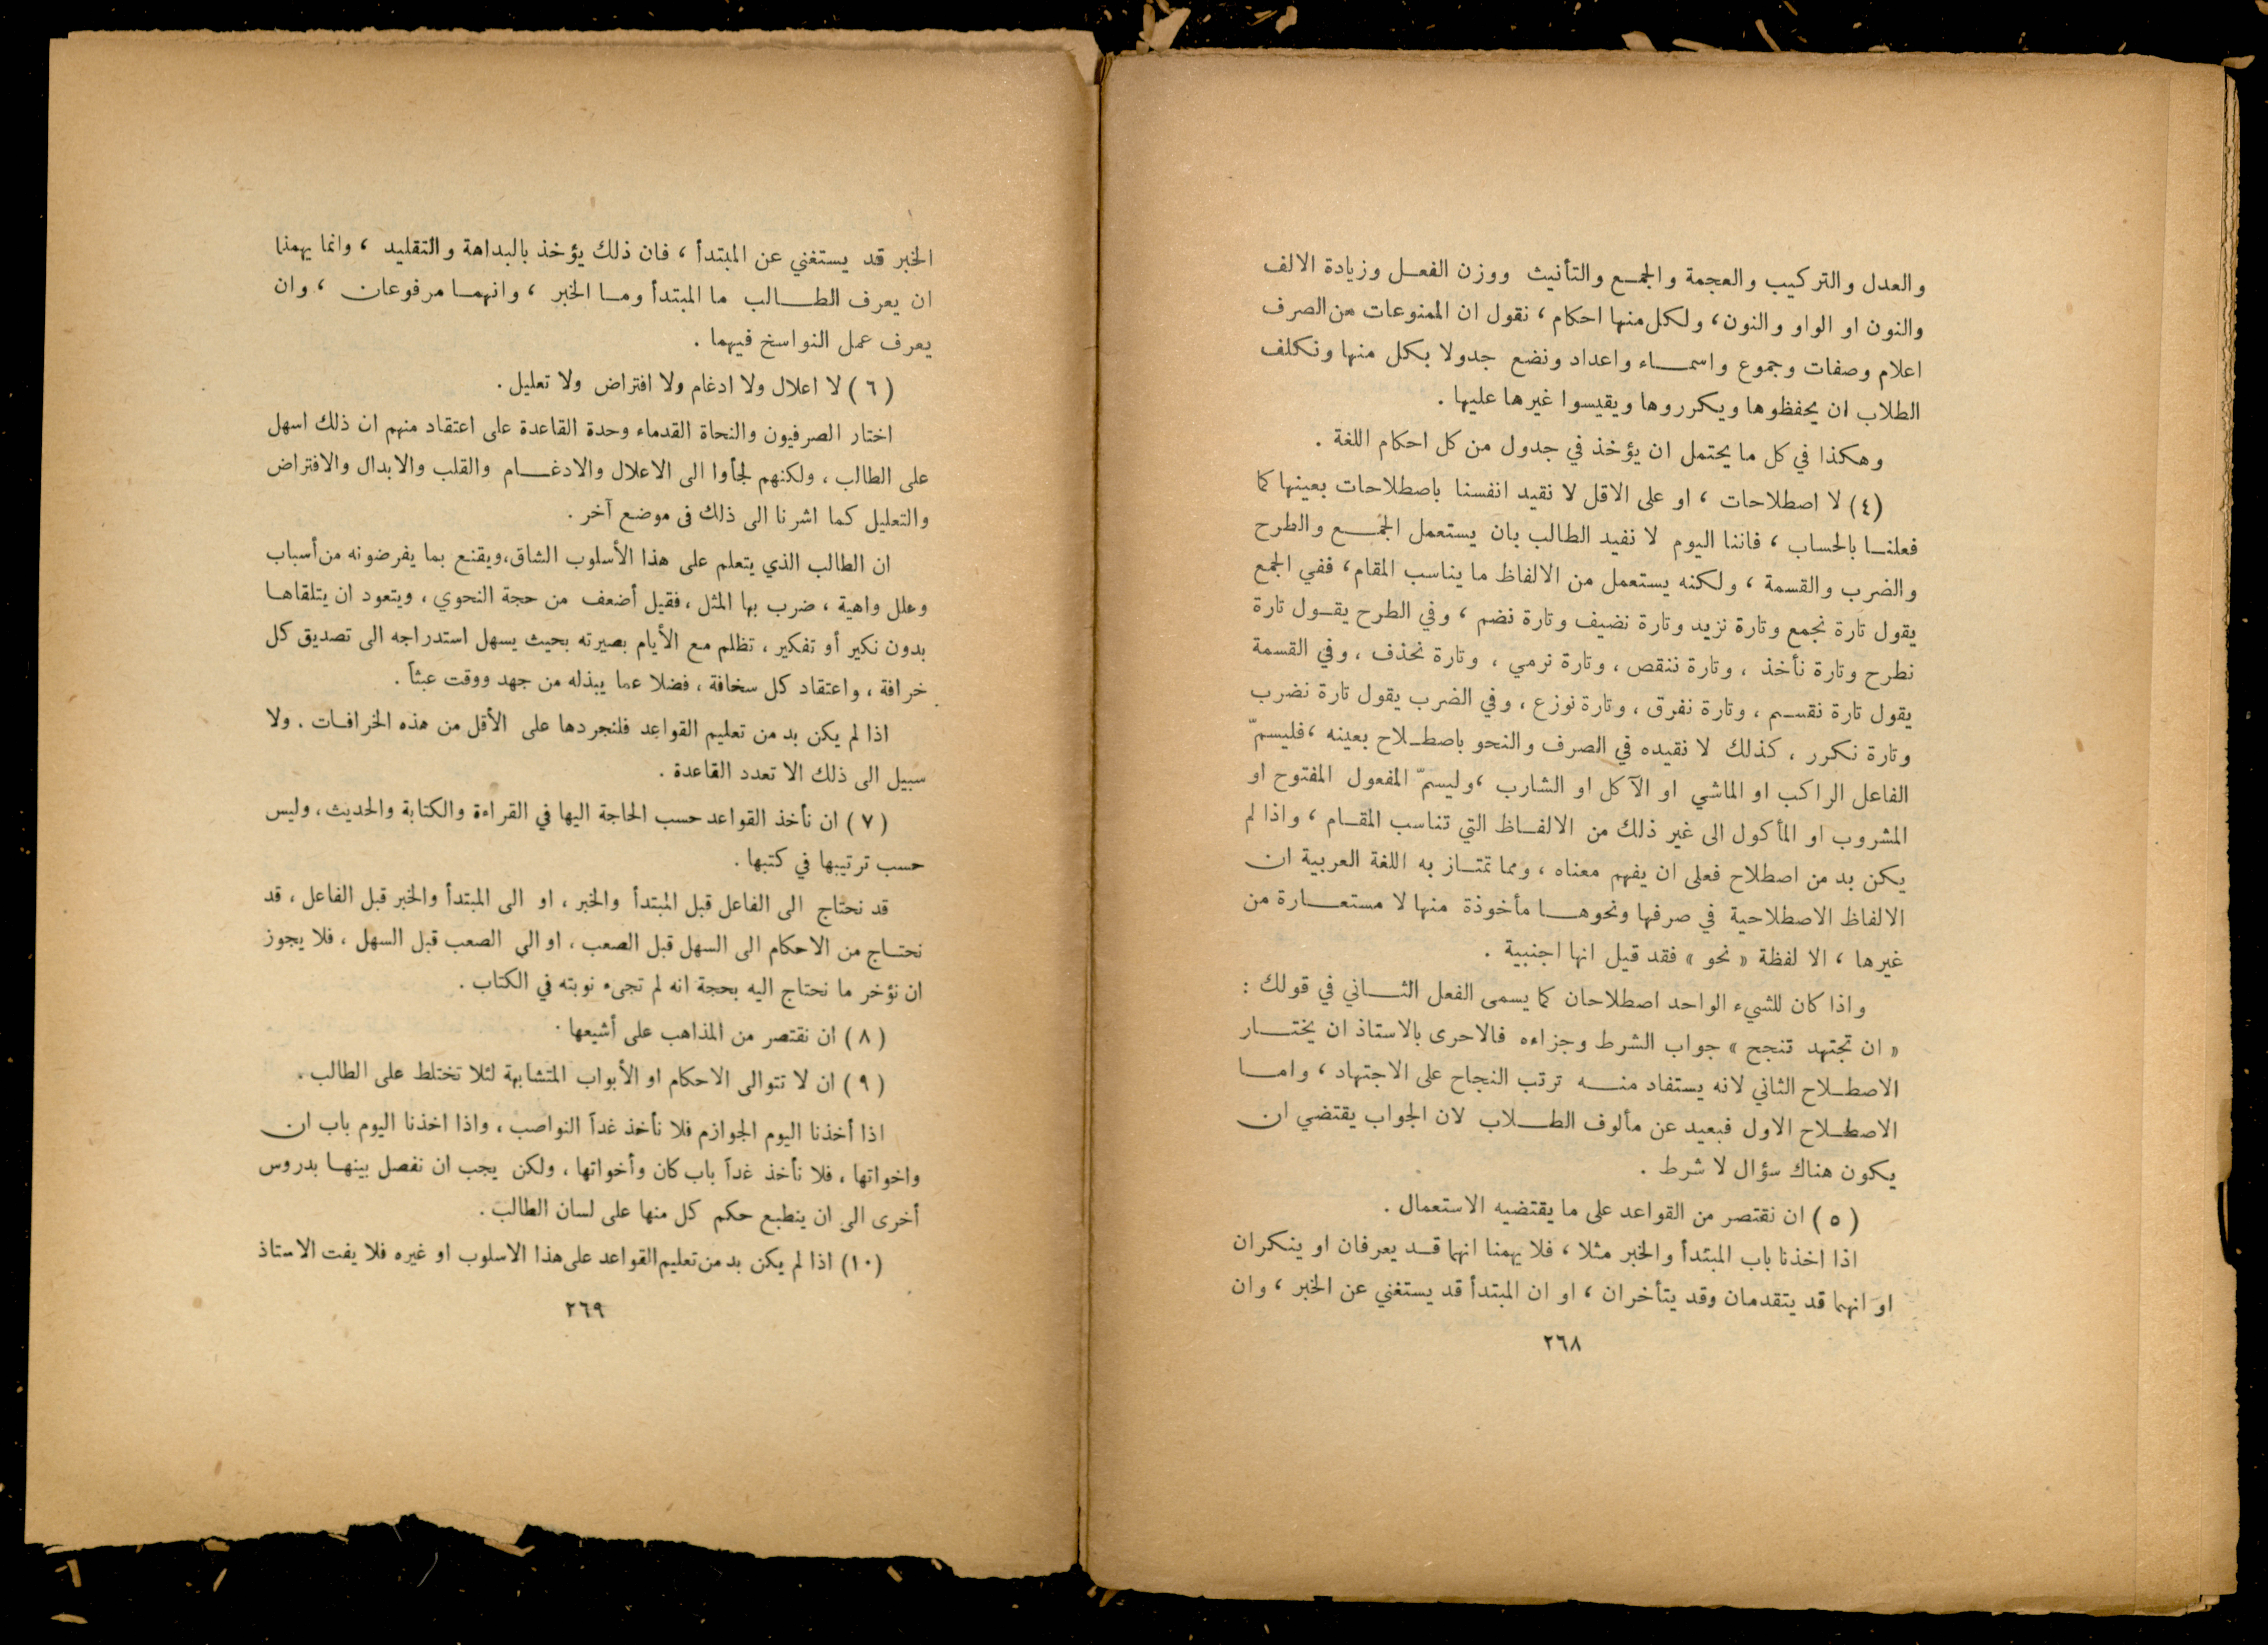 والعدل والتركيب والعجمة والجمع والتأنيث ووزن الفعل وزيادة الالف
والنون او الواو والنون، ولكل منها احكام، نقول ان الممنوعات من الصرف
اعلام وصفات وجموع واسماء واعداد ونضع جدولا بكل منها ونكلف
الطلاب ان يحفظوها ويكرروها ويقيسوا غيرها عليها.
وهكذا في كل ما يحتمل ان يؤخذ في جدول من كل احكام اللغة.
(٤) لا اصطلاحات، او على الاقل لا نقيد انفسنا باصطلاحات بعينها كما
فعلنا بالحساب، فاننا اليوم لا نفيد الطالب بان يستعمل الجمع والطرح
والضرب والقسمة، ولكنه يستعمل من الالفاظ ما يناسب المقام، ففي الجمع
يقول تارة نجمع وتارة نزيد وتارة نضيف وتارة نضم، وفي الطرح يقول تارة
نطرح وتارة نأخذ، وتارة ننقص، وتارة نرمي، وتارة نحذف، وفي القسمة
يقول تارة نقسم، وتارة نفرق، وتارة نوزع، وفي الضرب يقول تارة نضرب
وتارة نكرر، كذلك لا نقيده في الصرف والنحو باصطلاح بعينه، فليسمّ
الفاعل الراكب او الماشي او الآكل او الشارب، وليسمّ المفعول المفتوح او
المشروب او المأكول الى غير ذلك من الالفاظ التي تناسب المقام، واذا لم
يكن بد من اصطلاح فعلى ان يفهم معناه، ومما تمتاز به اللغة العربية ان
الالفاظ الاصطلاحية في صرفها ونحوها مأخوذة منها لا مستعارة من
غيرها، الا لفظة «نحو» فقد قيل انها اجنبية.
واذا كان للشيء الواحد اصطلاحان كما يسمى الفعل الثاني في قولك:
«ان تجتهد تنجح» جواب الشرط وجزاءه فالاحرى بالاستاذ ان يختار
الاصطلاح الثاني لانه يستفاد منه ترتب النجاح على الاجتهاد، واما
الاصطلاح الاول فبعيد عن مألوف الطلاب لان الجواب يقتضي ان
يكون هناك سؤال لا شرط.
(٥) ان نقتصر من القواعد على ما يقتضيه الاستعمال.
اذا اخذنا باب المبتدأ والخبر مثلا، فلا يهمنا انهما قد يعرفان او ينكران
او انهما قد يتقدمان وقد يتأخران، او ان المبتدأ قد يستغني عن الخبر، وان
٢٦٨
الخبر قد يستغني عن المبتدأ، فان ذلك يؤخذ بالبداهة والتقليد، وانما يهمنا
ان يعرف الطالب ما المبتدأ وما الخبر، وانهما مرفوعان، وان
يعرف عمل النواسخ فيهما.
(٦) لا اعلال ولا ادغام ولا افتراض ولا تعليل.
اختار الصرفيون والنحاة القدماء وحدة القاعدة على اعتقاد منهم ان ذلك اسهل
على الطالب، ولكنهم لجأوا الى الاعلال والادغام والقلب والابدال والافتراض
والتعليل كما اشرنا الى ذلك في موضع آخر.
ان الطالب الذي يتعلم على هذا الأسلوب الشاق، ويقنع بما يفرضونه من أسباب
وعلل واهية، ضرب بها المثل، فقيل أضعف من حجة النحوي، ويتعود ان يتلقاها
بدون نكير أو تفكير، تظلم مع الأيام بصيرته بحيث يسهل استدراجه الى تصديق كل
خرافة، واعتقاد كل سخافة، فضلا عما يبذله من جهد ووقت عبثاً.
اذا لم يكن بد من تعليم القواعد فلنجردها على الأقل من هذه الخرافات. ولا
سبيل الى ذلك الا تعدد القاعدة.
(٧) ان نأخذ القواعد حسب الحاجة اليها في القراءة والكتابة والحديث، وليس
حسب ترتيبها في كتبها.
قد نحتاج الى الفاعل قبل المبتدأ والخبر، او الى المبتدأ والخبر قبل الفاعل، قد
نحتاج من الاحكام الى السهل قبل الصعب، او الى الصعب قبل السهل، فلا يجوز
ان نؤخر ما نحتاج اليه بحجة انه لم تجىء نوبته في الكتاب.
(٨) ان نقتصر من المذاهب على أشيعها.
(٩) ان لا تتوالى الاحكام او الأبواب المتشابهة لئلا تختلط على الطالب.
اذا أخذنا اليوم الجوازم فلا نأخذ غداً النواصب، واذا اخذنا اليوم باب ان
واخواتها، فلا نأخذ غداً باب كان وأخواتها، ولكن يجب ان نفصل بينها بدروس
أخرى الى ان ينطبع حكم كل منها على لسان الطالب.
(١٠) اذا لم يكن بد من تعليم القواعد على هذا الاسلوب او غيره فلا يفت الاستاذ
٢٦٩